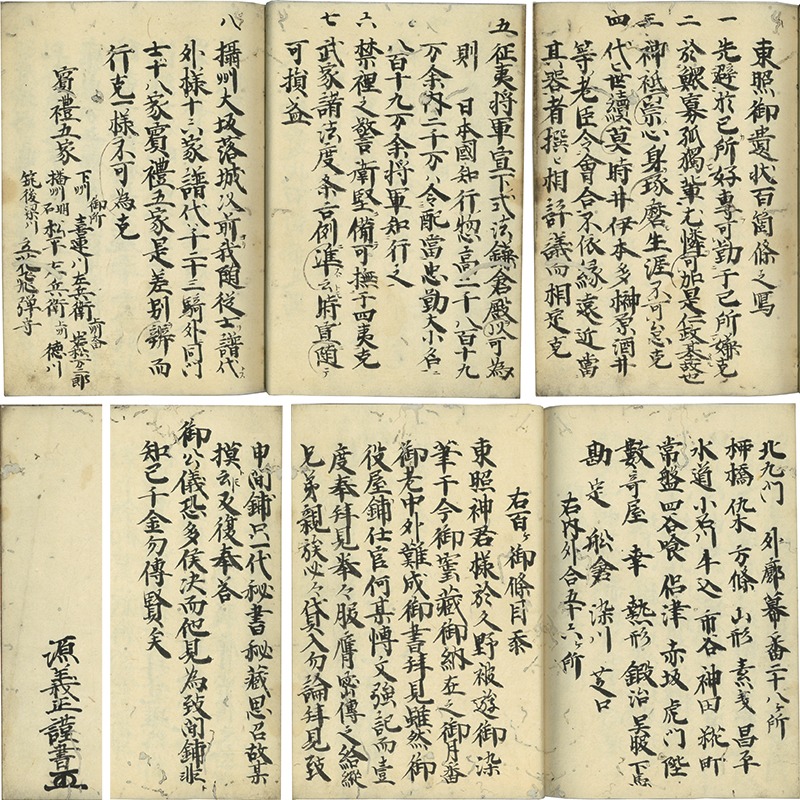 東照御遺状百箇條之寫
一 先避於己所好専可勤于己所嫌克
二 於鰥寡孤獨輩尤憐可加是仁政本故也
三 心身琢磨生涯不可忘克
四 代世續莫時井伊本多榊原酒井
等老臣令會合不依縁遠近當
其器者撰之相評議而相定克
五 征夷将軍宣下式法鎌倉殿以可為
則 日本國知行惣高二千八百十九
万余内二千万ハ令配當忠勤大小名ニ
八百十九万余将軍知行之
六 禁裡之警衛堅備可撫于四夷克
七 武家諸法度条古例準之時宜随テ
可損益
八 攝州大坂落城以前我随従士譜代
外様十三家譜代千二十三騎外同門
士十八家賓禮五家是差別辨而
行克一様不可為克
賓禮五家
御所
下州 喜連川左兵衛
播州明石 松平七兵衛 徳川
筑後梁川 立花飛弾守
北九門 外廓幕番二十八ヶ所
柳橋 山形 昌平
水道 小石川 牛込 市谷 神田 糀町
常盤 四谷喰 赤坂 虎門
數寄屋 幸 鍛冶 呉服
勘定 舩倉 染川 芝口
右内外合五十六ヶ所
右百ヶ御條目忝
東照神君様於久野被遊御染
筆于今御寳藏御納在之御月番
御老中外難成御書拝見雖然御
役屋鋪仕官何某博文強記而壹
度奉拝見拳々服膺密傳之給縦
兄弟親族必々貸人勿論拝見致
申間鋪只一代秘書秘藏思召故某
摸去又復奉答
御公儀恐多候决而他見為致間鋪非
知己千金勿傳賢矣
源義正謹書